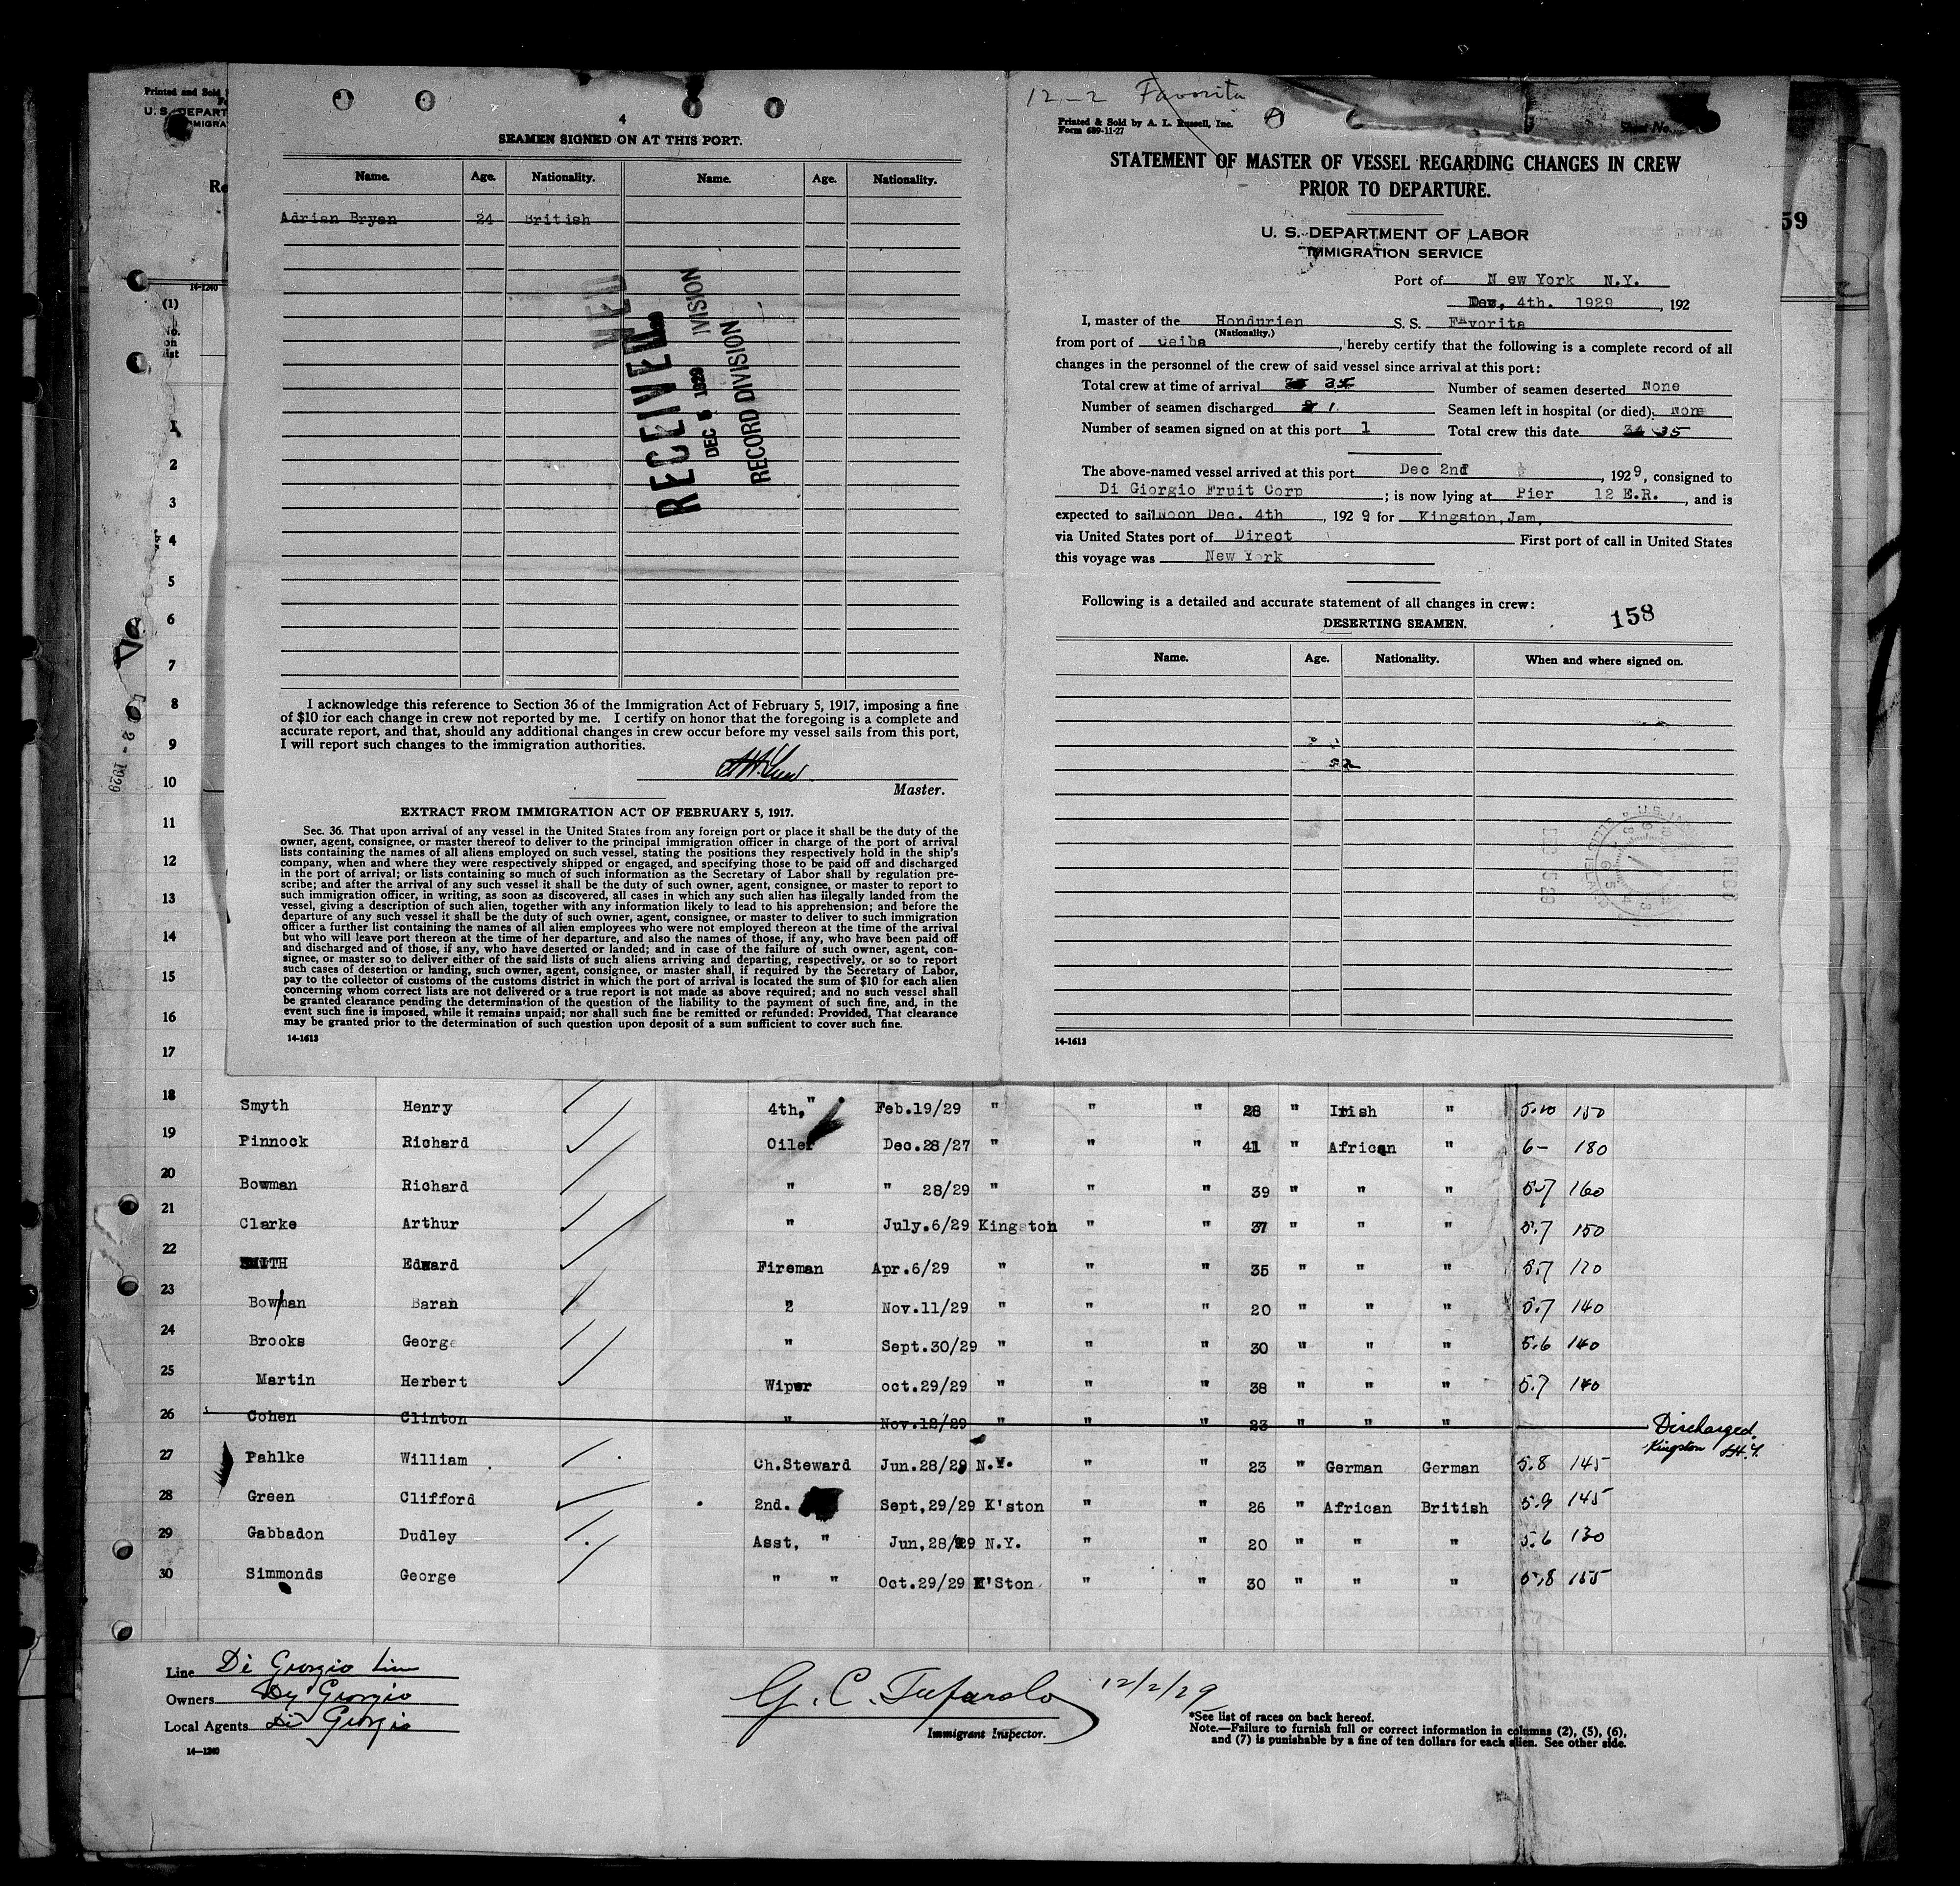 12-2 Favorita
Printed and Sold
U. S. DEPART
IMMIGRA
Re
14-1240
(1)
No.
on
list
59
4
SEAMEN SIGNED ON AT THIS PORT.
Name. Age. Nationality. Name. Age. Nationality.
Adrian Bryan 24 British
RECEIVED
DEC 5 1929
RECORD DIVISION
I acknowledge this reference to Section 36 of the Immigration Act of February 5, 1917, imposing a fine
of $10 for each change in crew not reported by me. I certify on honor that the foregoing is a complete and
accurate report, and that, should any additional changes in crew occur before my vessel sails from this port,
I will report such changes to the immigration authorities.
Master.
EXTRACT FROM IMMIGRATION ACT OF FEBRUARY 5, 1917.
Sec. 36. That upon arrival of any vessel in the United States from any foreign port or place it shall be the duty of the
owner, agent, consignee, or master thereof to deliver to the principal immigration officer in charge of the port of arrival
lists containing the names of all aliens employed on such vessel, stating the positions they respectively hold in the ship's
company, when and where they were respectively shipped or engaged, and specifying those to be paid off and discharged
in the port of arrival; or lists containing so much of such information as the Secretary of Labor shall by regulation pre-
scribe; and after the arrival of any such vessel it shall be the duty of such owner, agent, consignee, or master to report to
such immigration officer, in writing, as soon as discovered, all cases in which any such alien has illegally landed from the
vessel, giving a description of such alien, together with any information likely to lead to his apprehension; and before the
departure of any such vessel it shall be the duty of such owner, agent, consignee, or master to deliver to such immigration
officer a further list containing the names of all alien employees who were not employed thereon at the time of the arrival
but who will leave port thereon at the time of her departure, and also the names of those, if any, who have been paid off
and discharged and of those, if any, who have deserted or landed; and in case of the failure of such owner, agent, con-
signee, or master so to deliver either of the said lists of such aliens arriving and departing, respectively, or so to report
such cases of desertion or landing, such owner, agent, consignee, or master shall, if required by the Secretary of Labor,
pay to the collector of customs of the customs district in which the port of arrival is located the sum of $10 for each alien
concerning whom correct lists are not delivered or a true report is not made as above required; and no such vessel shall
be granted clearance pending the determination of the question of the liability to the payment of such fine, and, in the
event such fine is imposed, while it remains unpaid; nor shall such fine be remitted or refunded: Provided, That clearance
may be granted prior to the determination of such question upon deposit of a sum sufficient to cover such fine.
14-1613
Printed & Sold by A. L. Russell, Inc.
Form 689-11-27
Sheet No.
STATEMENT OF MASTER OF VESSEL REGARDING CHANGES IN CREW
PRIOR TO DEPARTURE.
U. S. DEPARTMENT OF LABOR
IMMIGRATION SERVICE
Port of New York N.Y.
4th. 1929, 192
I, master of the Hondurien S. S. Favorita
(Nationality.)
from port of Ceiba, hereby certify that the following is a complete record of all
changes in the personnel of the crew of said vessel since arrival at this port:
Total crew at time of arrival 35 Number of seamen deserted None
Number of seamen discharged 1 Seamen left in hospital (or died). None
Number of seamen signed on at this port 1 Total crew this date 35
The above-named vessel arrived at this port Dec 2nd, 1929, consigned to
Di Giorgio Fruit Corp; is now lying at Pier 12 E.R., and is
expected to sail Noon Dec. 4th, 1929 for Kingston, Jam,
via United States port of Direct First port of call in United States
this voyage was New York
Following is a detailed and accurate statement of all changes in crew:
158
DESERTING SEAMEN.
Name. Age. Nationality. When and where signed on.
14-1613
1
2
3
4
5
6
7
8
9
10
11
12
13
14
15
16
17
18 Smyth Henry 4th, " Feb.19/29 " " " 28 " Irish " 5.10 150
19 Pinnock Richard Oiler Dec.28/27 " " " 41 " African " 6- 180
20 Bowman Richard " " 28/29 " " " 39 " " " 5.7 160
21 Clarke Arthur " July.6/29 Kingston " " 37 " " " 5.7 150
22 SMITH Edward Fireman Apr.6/29 " " " 35 " " " 5.7 120
23 Bowman Barah " Nov.11/29 " " " 20 " " " 5.7 140
24 Brooks George " Sept.30/29 " " " 30 " " " 5.6 140
25 Martin Herbert Wiper oct.29/29 " " " 38 " " " 5.7 140
26 Cohen Clinton " Nov.12/29 " " " 23 " " " Discharged.
Kingston
27 Pahlke William Ch.Steward Jun.28/29 N.Y. " " 23 " German German 5.8 145
28 Green Clifford 2nd. Sept,29/29 K'ston " " 26 " African British 5.9 145
29 Gabbadon Dudley Asst, " Jun,28/29 N.Y. " " 20 " " " 5.6 130
30 Simmonds George " " Oct.29/29 K'Ston " " 30 " " " 5.8 155
Line Di Giorgio Line
Owners Di Giorgio
Local Agents Di Giorgio
14-1240
G. C. Tufarolo 12/2/29
Immigrant Inspector.
*See list of races on back hereof.
Note.—Failure to furnish full or correct information in columns (2), (5), (6),
and (7) is punishable by a fine of ten dollars for each alien. See other side.